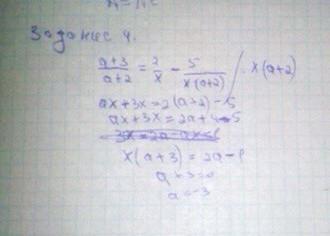 Задание 4.
a+3/a+2 = 2/x − 5/x(a+2) / · x(a+2)
ax+3x=2(a+2)−5
ax+3x=2a+4−5
x(a+3)=2a−1
a+3=0
a=−3